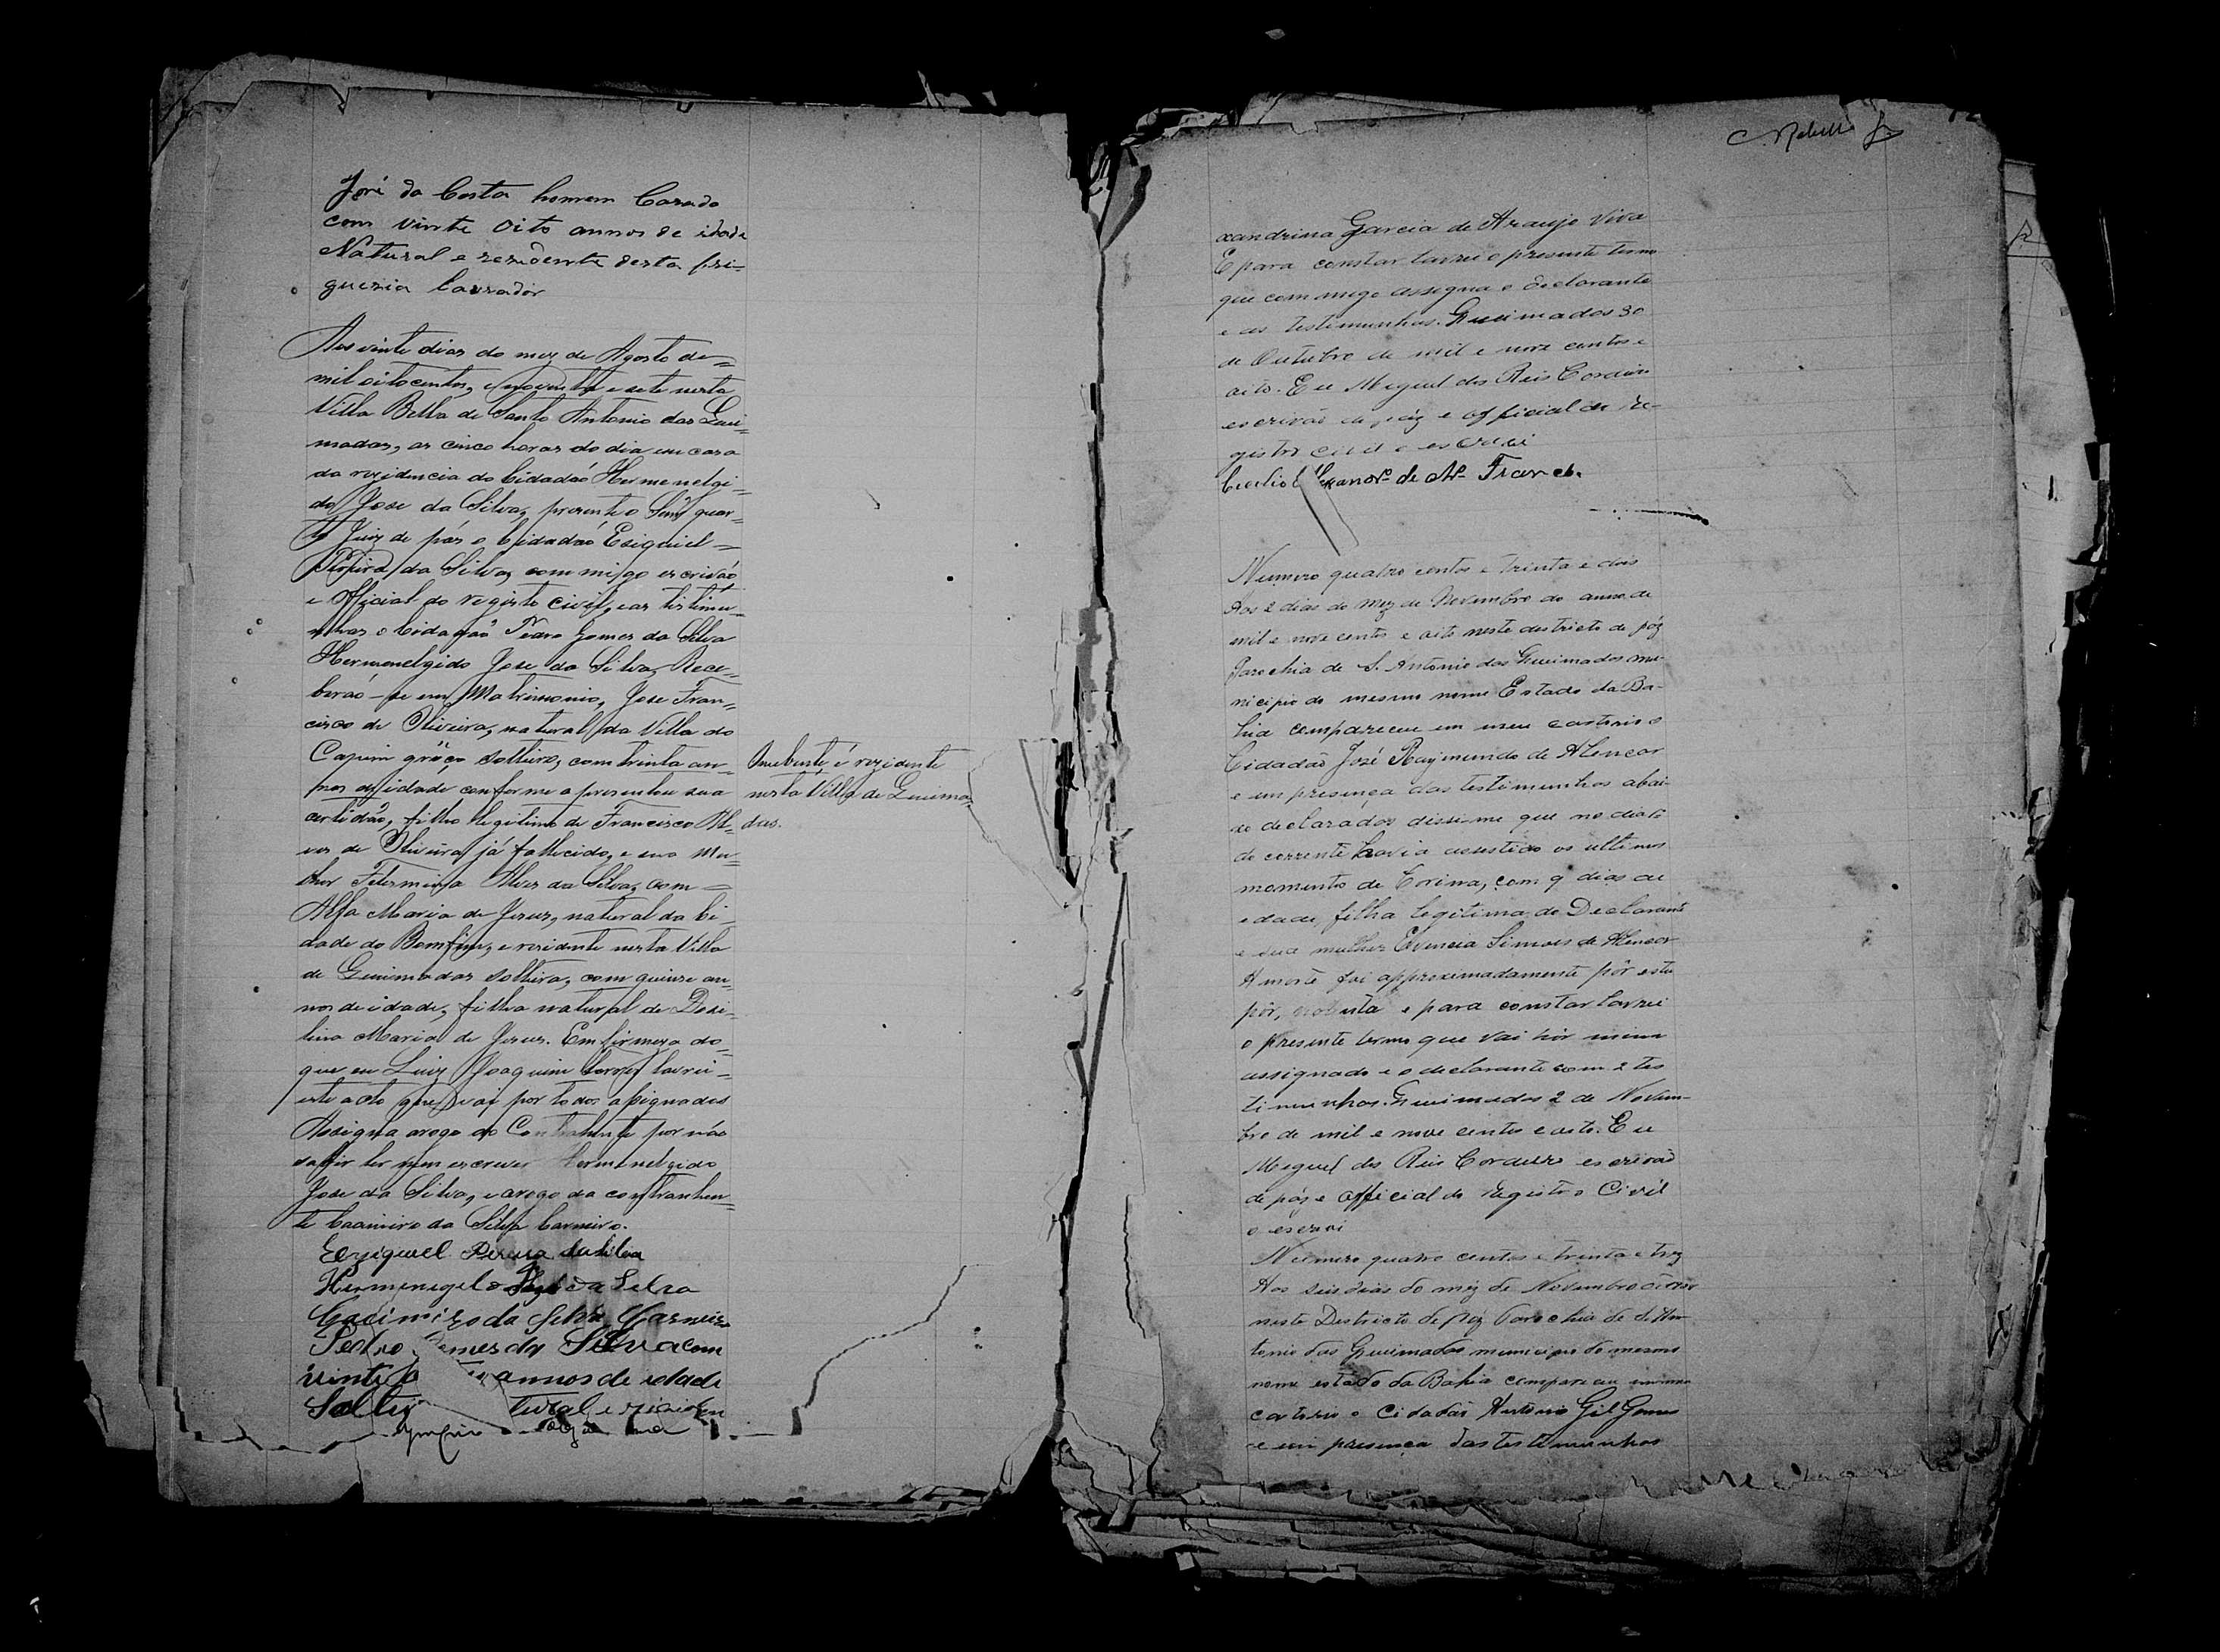 José da Costa homem Casado
com vinte oito annos de idade
Natural e rezidente desta fri-
guezia lavrador
Aos vinte dias do mez de Agosto de
mil oitocentos, e noventa e sete nesta
Villa Bella de Santo Antonio das Quei=
madas, as cinco horas do dia em casa
da rezidencia do Cidadaõ Hermenelgi=
do Jose da Silva, presente o quar=
to Juiz de pás o Cidadaõ Esiquiel
Pereira da Silva, commigo escrivaõ
e Official do registo civil, e as listimu=
nhas o Cidadaõ Pedro Gomes da Silva
Hermenelgido Jose da Silva, Rece=
beraõ-se em Matrimonio, Jose Fran=
cisco de Oliveira, natural da Villa do
Capim grôço solteiro, com trinta an=
nos de idade conforme apresentou sua
certidaõ, filho legitimo de Francisco Al=
ves de Oliveira já fallecido, e sua mu=
lher Felismina Alves da Silva, com
Maria de Jesus, natural da Ci=
dade do Bomfim, e rezidente nesta Villa
de Queimadas solteira, com quinse an=
nos de idade, filha natural de Dosi=
lina Maria de Jesus. Em firmeza do=
que eu Luiz Joaquim lavrei
este acto que vai por todos assignados
Assigna arogo do Contrahente por não
saber ler nem escrever Hermenelgido
Jose da Silva, e arogo da contrahen=
te Casimiro da Silva Carneiro.
Ezziquel Pereira da Silva
Hermenegeldo José da Silva
Cacimiro da Silva Carneiro
Pedro Gomes da Silva com
vinte annos de idade
Solteiro tural e
O nubente é rezidente
nesta Villa de Queima=
das.
xandrina Garcia de Araujo Viva
E para constar lavrei o presente termo
que commigo assigna o declarante
e as testimunhas. Queimadas 30
de Outubro de mil e nove centos e
oito. Eu Miguel dos Reis Cordeiro
escrivão de páz e official do re-
gistro civil o escrevi
de Franco.
Numero quatro centos e trinta e dois
Aos 2 dias do mez de Novembro do anno de
mil e nove centos e oito neste destricto de páz
Parochia de S. Antonio das Queimadas mu-
nicipio do mesmo nome Estado da Ba-
hia compareceu em meu cartorio o
Cidadão José Raymundo de Alencar
e em presença das testimunhas abai-
xo declarados disse-me que no dia
do corrente havia assistido os ultimos
momentos de Corina, com 9 dias de
edade, filha legitima do Declarante
e sua mulher Simões de Alencar
A morte foi approximadamente pôr esta
pôr, e para constar lavrei
o presente termo que vai pôr mim
assignado e o declarante com 2 tes
timunhas. Queimadas 2 de Novem-
bro de mil e nove centos e oito. Eu
Miguel dos Reis Cordeiro escrivão
de páz e official do registro Civil
o escrevi
Numero quatro centos e trinta e trez
Aos seis dias do mez de Novembro
neste Districto de páz Parochia de S. An
tonio das Queimadas municipio do mesmo
nome estado da Bahia compareceu em meu
cartorio o Cidadão Antonio Gil Gomes
e em presença das testimunhas